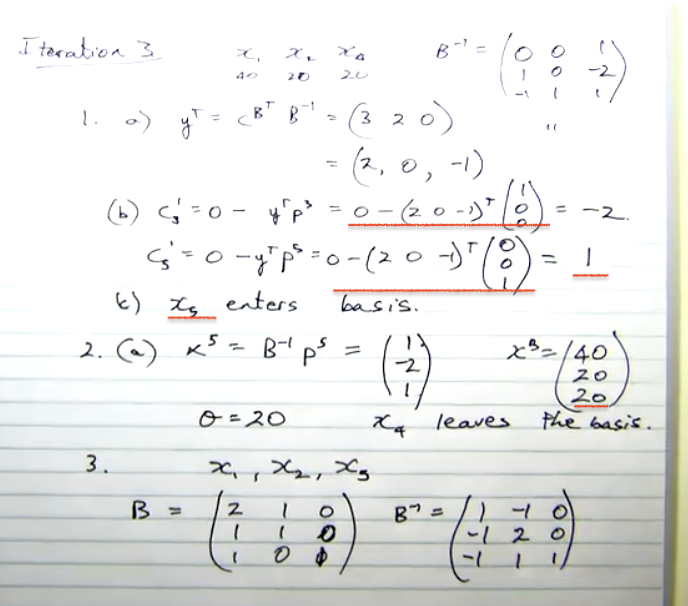 Iteration 3 x₁ x₂ x₄ B⁻¹ = (0 0 1
40 20 20 1 0 -2
-1 1 1)
1. a) yᵀ = c^Bᵀ B⁻¹ = (3 2 0) "
= (2, 0, -1)
(b) c₃' = 0 - yᵀp³ = 0 - (2 0 -1)ᵀ (1 0 0) = -2.
c₅' = 0 - yᵀp⁵ = 0 - (2 0 -1)ᵀ (0 0 1) = 1
c) x₅ enters basis.
2. (a) x⁵ = B⁻¹ p⁵ = (1 -2 1) x^B = (40 20 20)
θ = 20 x₄ leaves the basis.
3. x₁, x₂, x₅
B = (2 1 0 B⁻¹ = (1 -1 0
1 1 0 -1 2 0
1 0 1) -1 1 1)